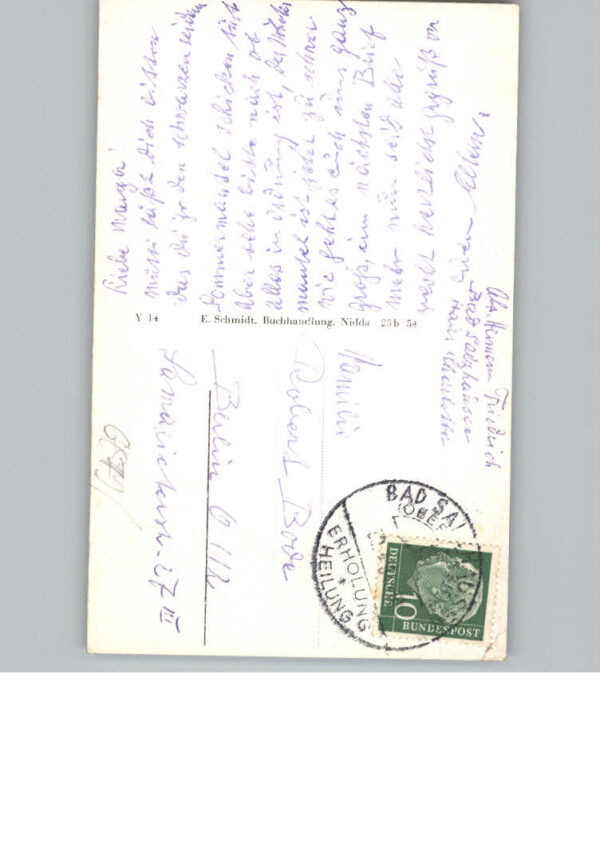 Liebe Margit!
Mutti läßt Dich bitten
das Du ihr den schwarzen seiden
Sommermantel schicken tust
Aber sehe bitte nach ob
alles in Ordnung ist, der
mantel ist jetzt zu schwer
wie geht es Euch uns ganz
groß, im nächsten Brief
mehr nun seid alle
recht herzlich gegrüßt von
Euren Eltern.
Abs. Hermann Friedrich
Bad Salzhausen
Y 14 E. Schmidt, Buchhandlung, Nidda 23b 54
Familie
Robert Bode
Berlin O 112
27 III
BAD SAL
(OBER
ERHOLUNG
* HEILUNG
DEUTSCHE
BUNDESPOST
10